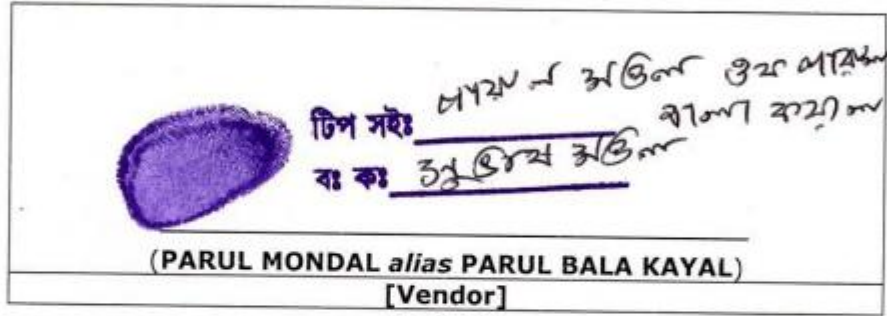 টিপ সইঃ পারুল মন্ডল ওরফে পারুল
বালা কয়াল
বঃ কঃ মন্ডল
(PARUL MONDAL alias PARUL BALA KAYAL)
[Vendor]